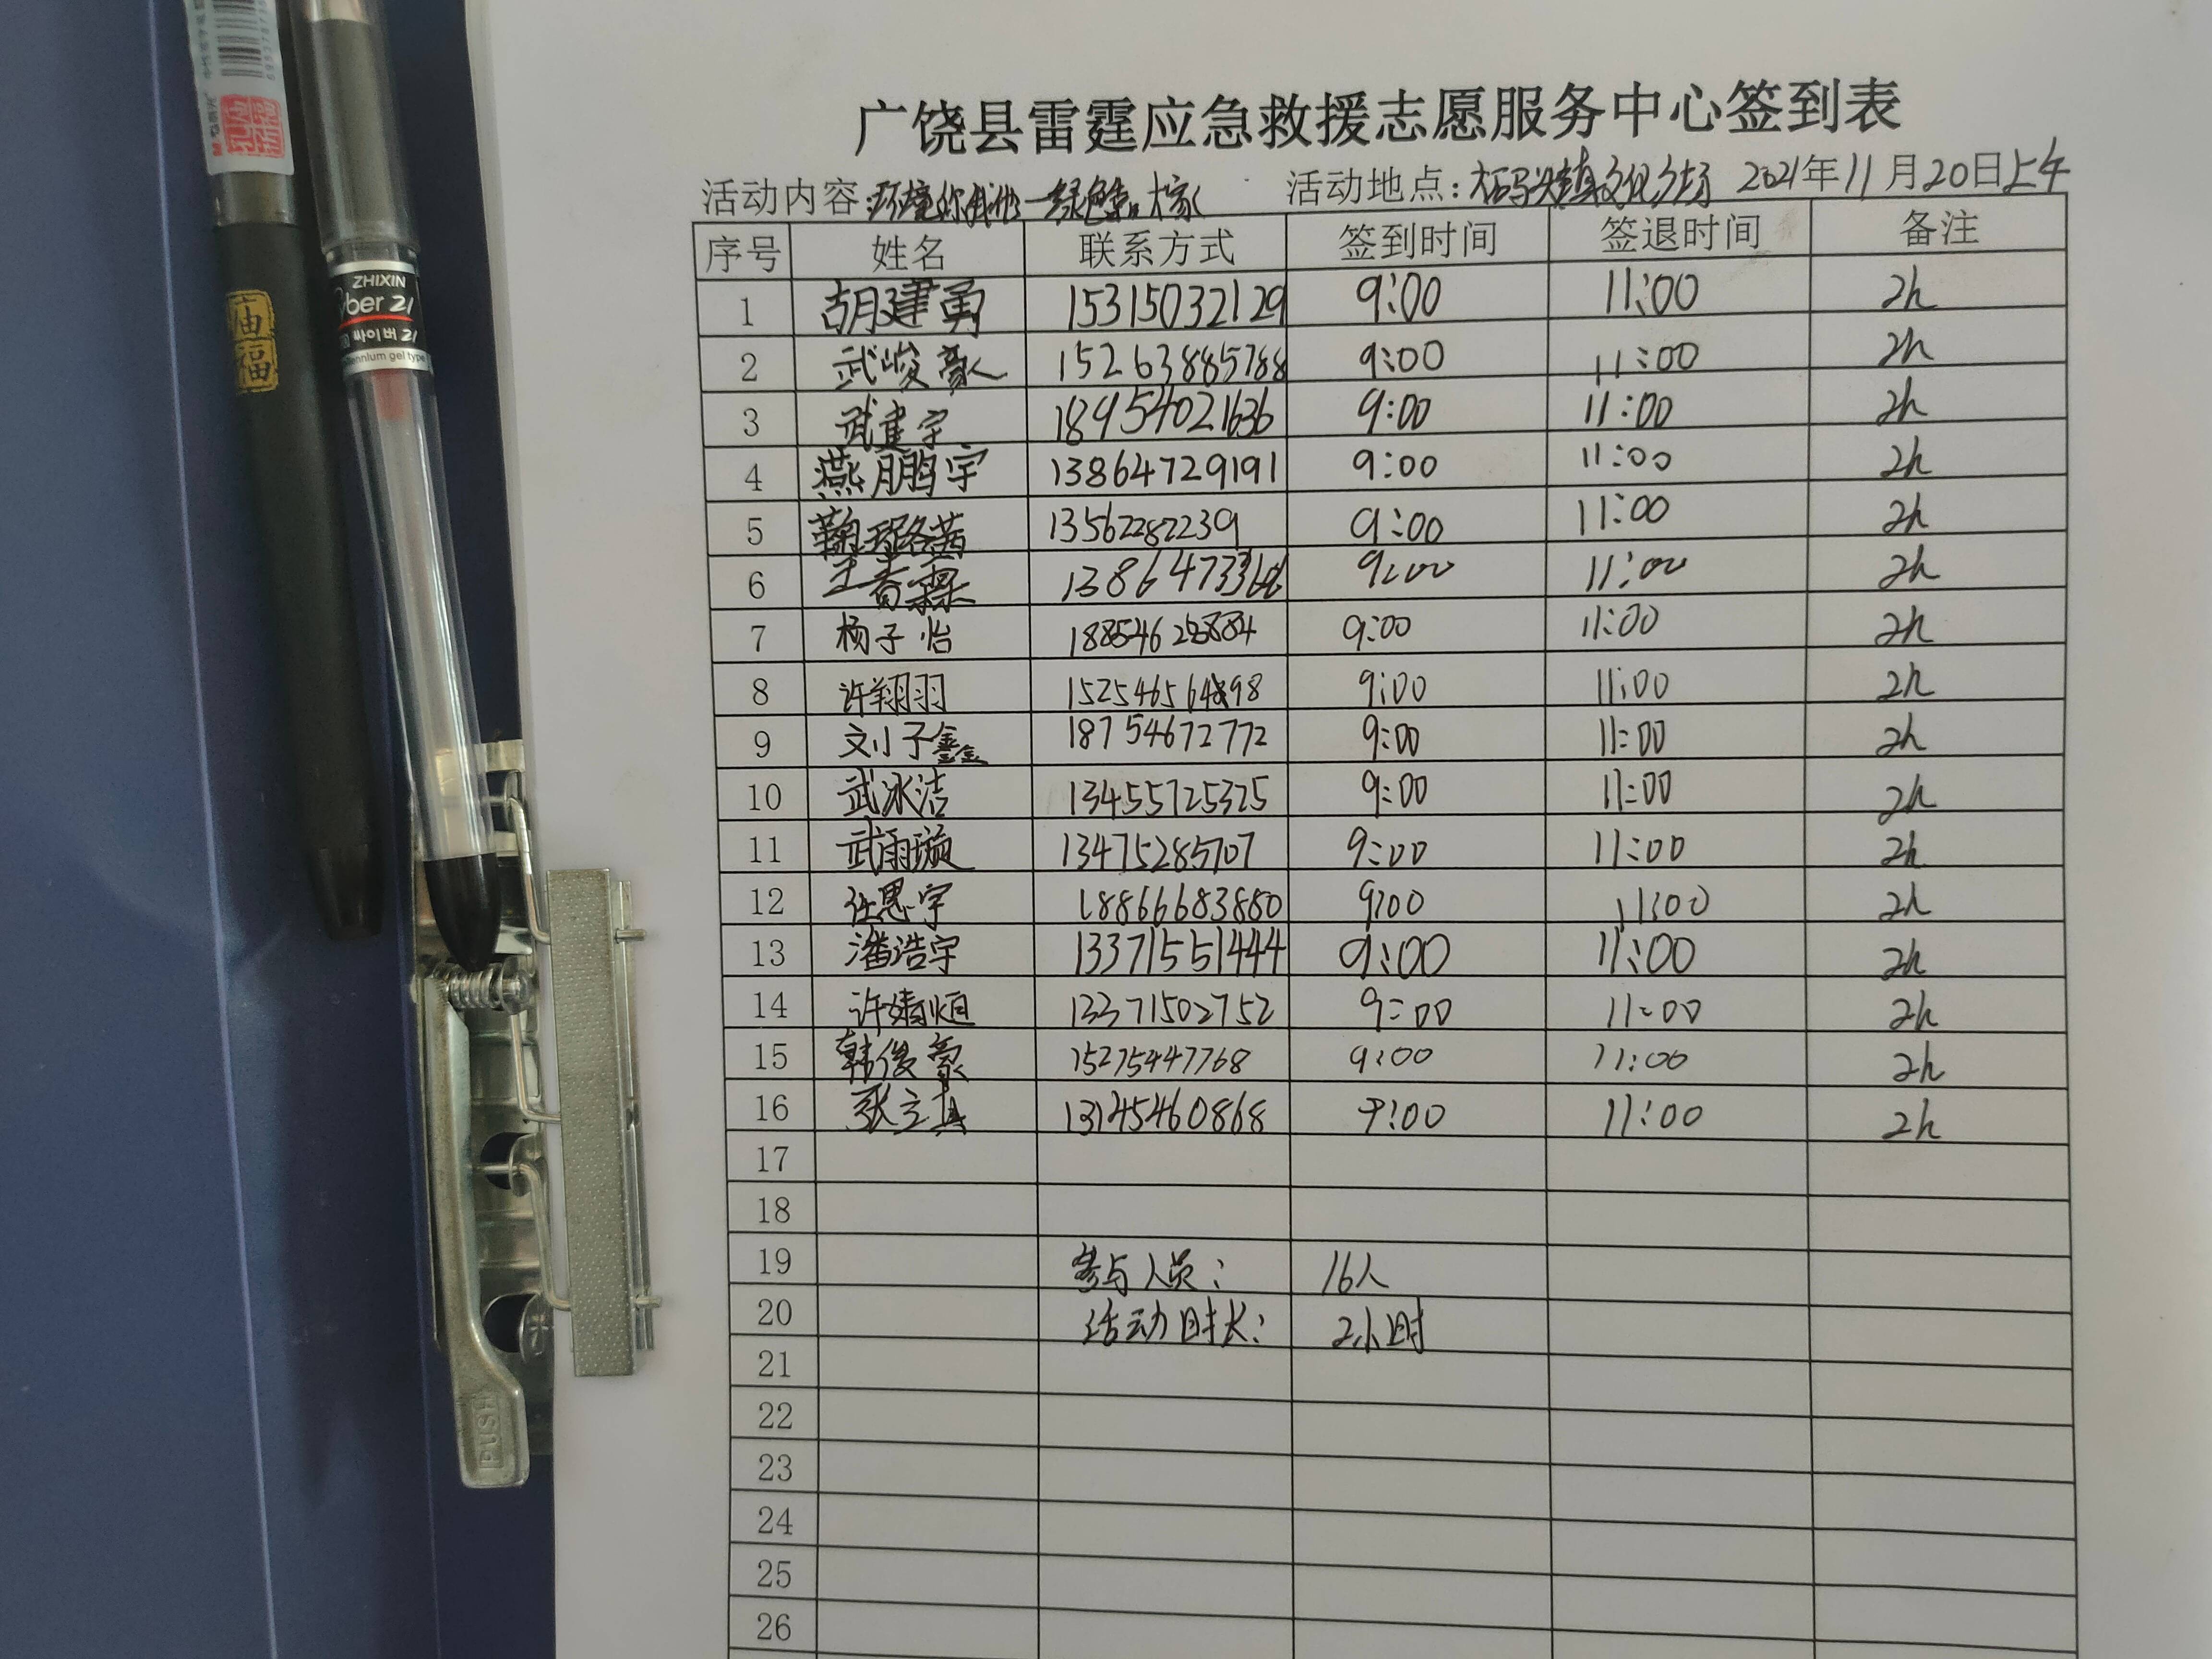 广饶县雷霆应急救援志愿服务中心签到表
活动内容:环境你我他 一绿色靠大家 活动地点:大码头镇文化广场 2021年11月20日上午
序号 姓名 联系方式 签到时间 签退时间 备注
1 胡建勇 15315032129 9:00 11:00 2h
2 武峻豪 15263885788 9:00 11:00 2h
3 武建宇 18954021636 9:00 11:00 2h
4 燕鹏宇 13864729191 9:00 11:00 2h
5 鞠璐茜 13562282239 9:00 11:00 2h
6 王春霖 9:00 11:00 2h
7 杨子怡 9:00 11:00 2h
8 许翔羽 9:00 11:00 2h
9 刘子鑫 18754672772 9:00 11:00 2h
10 武冰洁 13455725325 9:00 11:00 2h
11 武雨璇 13475285707 9:00 11:00 2h
12 任思宇 18866683880 9:00 11:00 2h
13 潘浩宇 13371551444 9:00 11:00 2h
14 许婧恒 13371502752 9:00 11:00 2h
15 韩俊豪 15275447768 9:00 11:00 2h
16 张立其 13145460868 9:00 11:00 2h
17
18
19 参与人员: 16人
20 活动时长: 2小时
21
22
23
24
25
26
ZHIXIN
yber 21
싸이버 21
ennium gel type
庙
福
PUSH